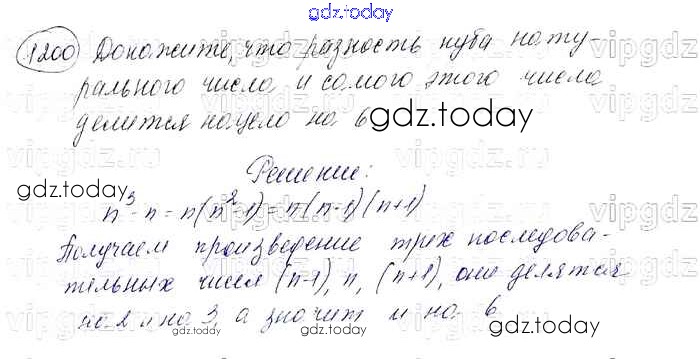 gdz.today
1200 Докажите, что разность куба нату-
рального числа и самого этого числа
делится нацело на 6 gdz.today
Решение:
gdz.today
n³-n = n(n²-1) = n(n-1)(n+1)
Получаем произведение трех последова-
тельных чисел (n-1), n, (n+1), они делятся
на 2 и на 3, а значит и на 6
gdz.today